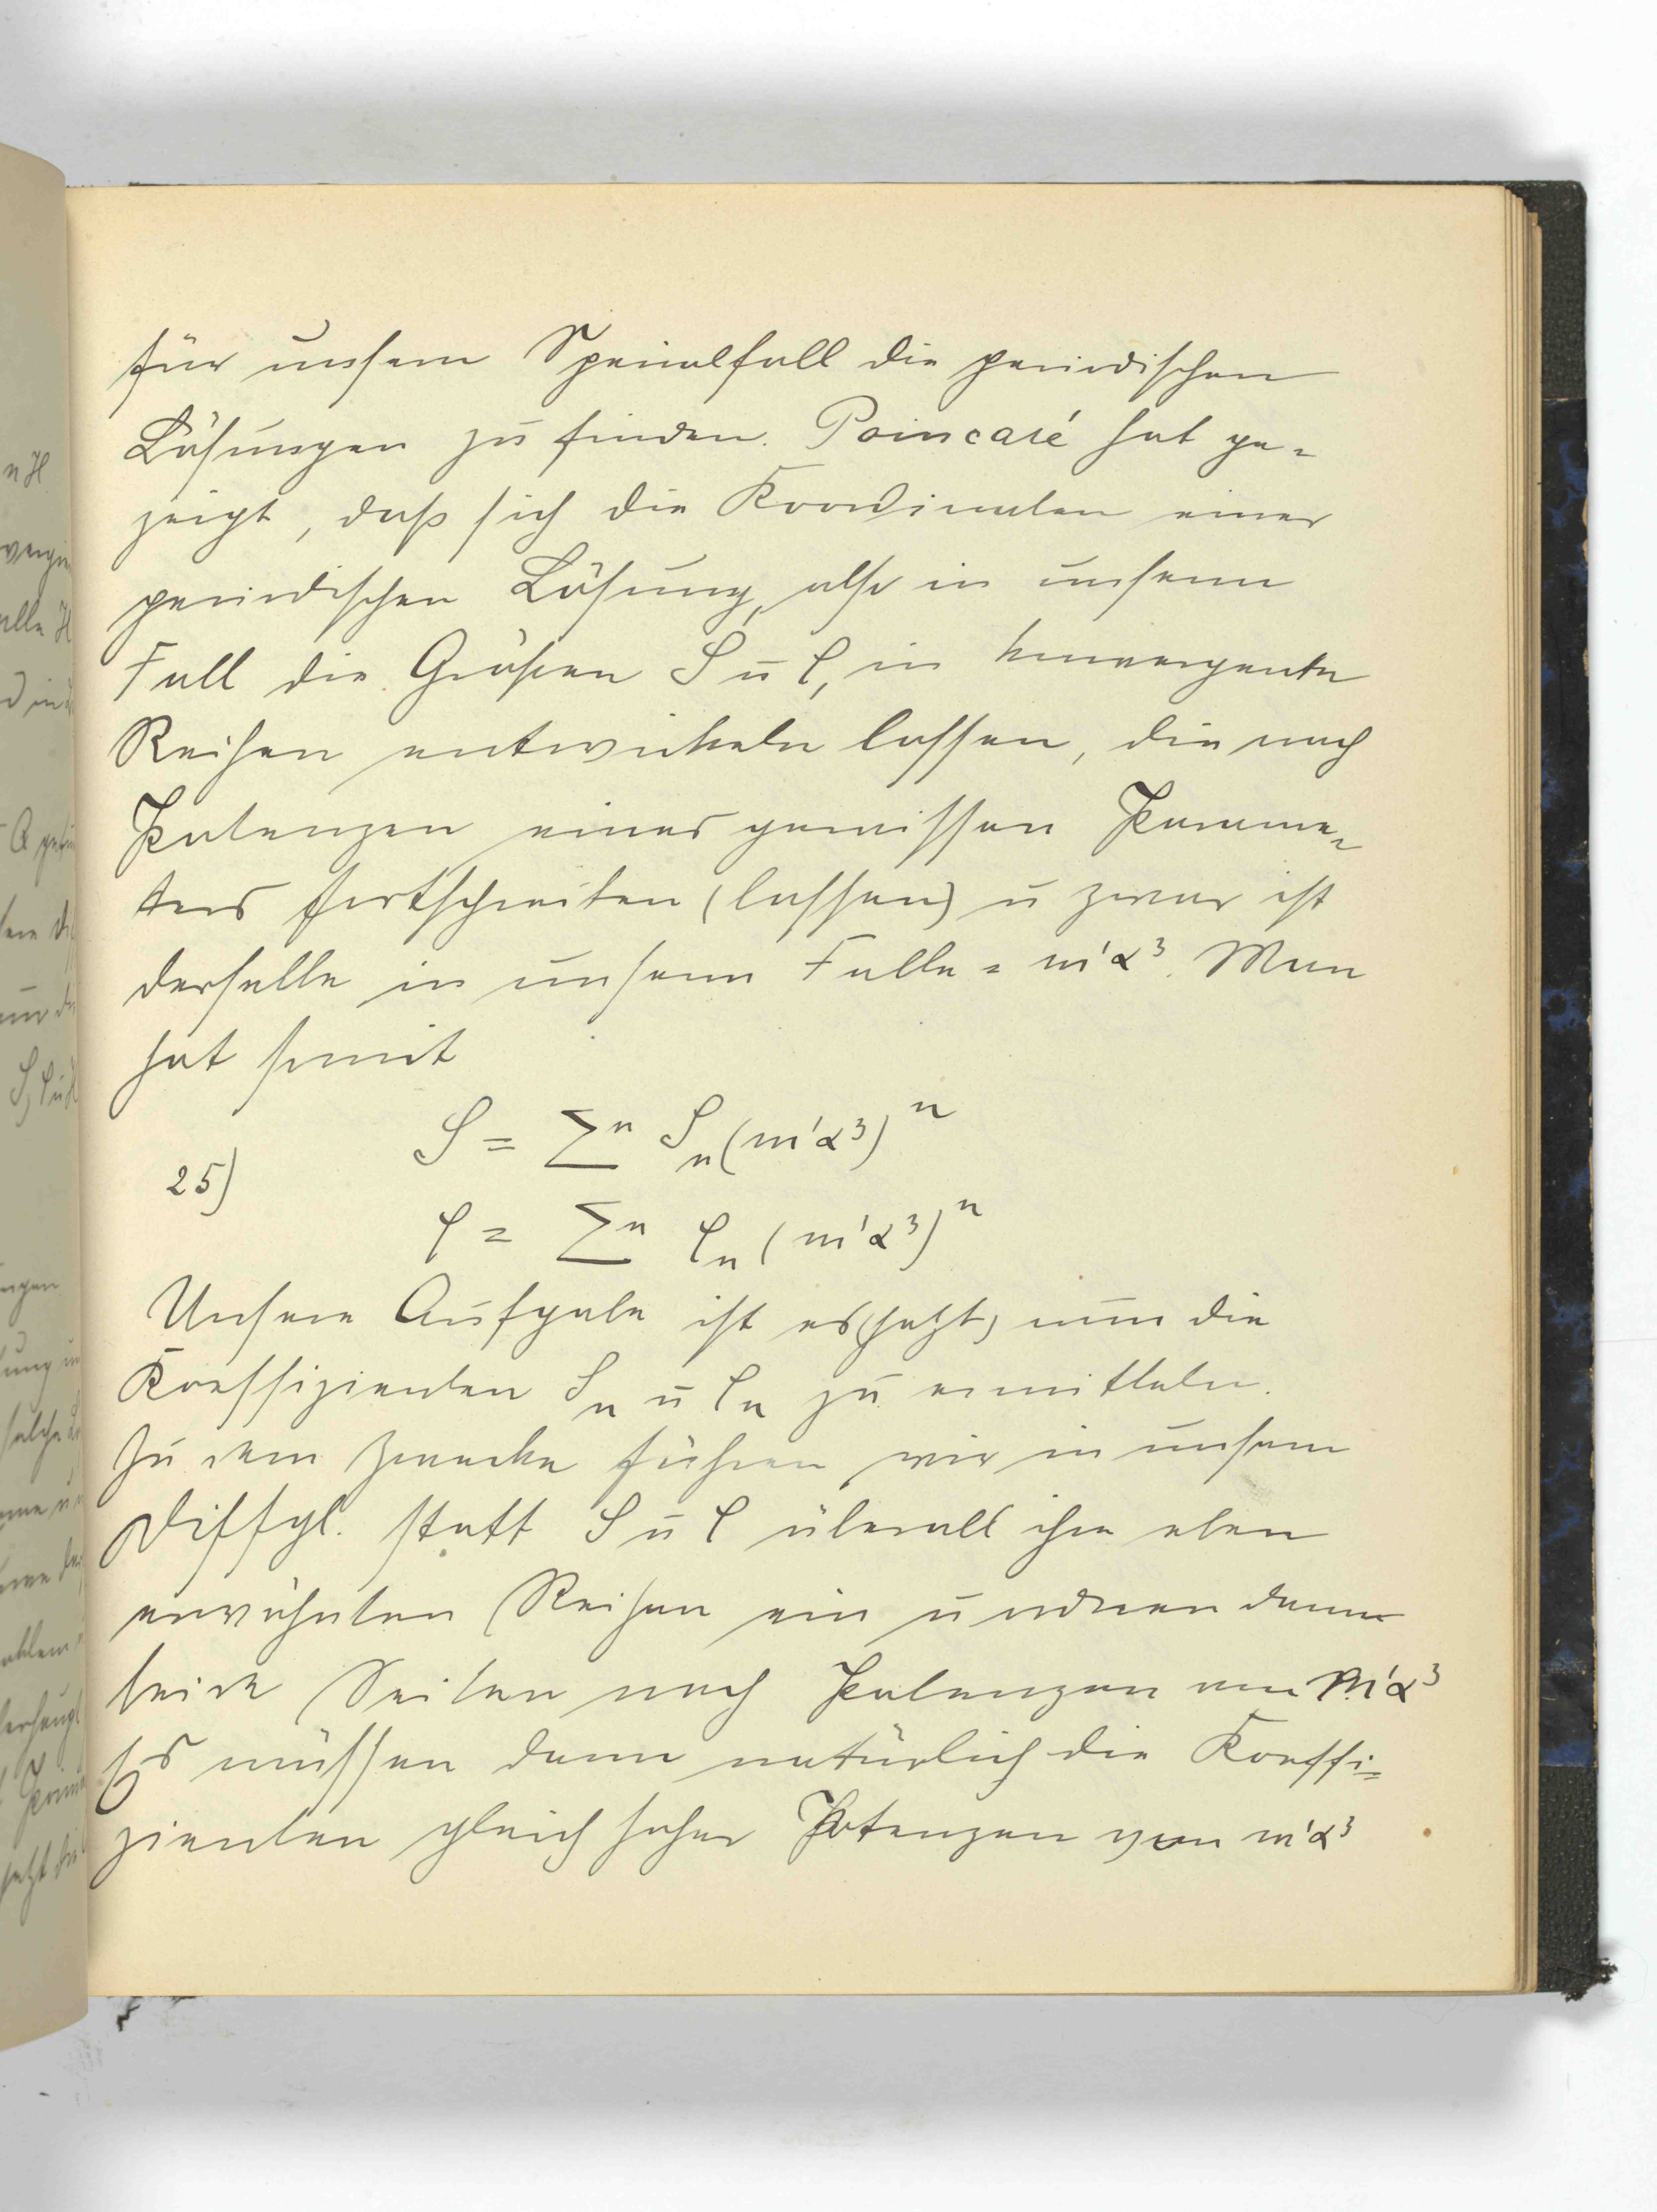 für unsern Spezialfall die periodischen
Lösungen zu finden. Poincaré hat ge-
zeigt, daß sich die Koordinaten einer
periodischen Lösung, also in unserm
Fall die Größen S u φ, in konvergente
Reihen entwickeln lassen, die nach
Potenzen eines gewissen Parame-
ters fortschreiten (lassen) u zwar ist
derselbe in unserm Falle = m'α³. Man
hat somit
S = Σⁿ Sₙ(m'α³)ⁿ
25)
φ = Σⁿ φₙ(m'α³)ⁿ
Unsere Aufgabe ist es (jetzt) nun die
Koeffizienten Sₙ u φₙ zu ermitteln.
Zu dem Zwecke führen wir in unsern
Diffgl. statt S u φ überall ihre eben
erwähnten Reihen ein u ordnen dann
beide Seiten nach Potenzen von m'α³
Es müssen dann natürlich die Koeffi-
zienten gleich hoher Potenzen von m'α³